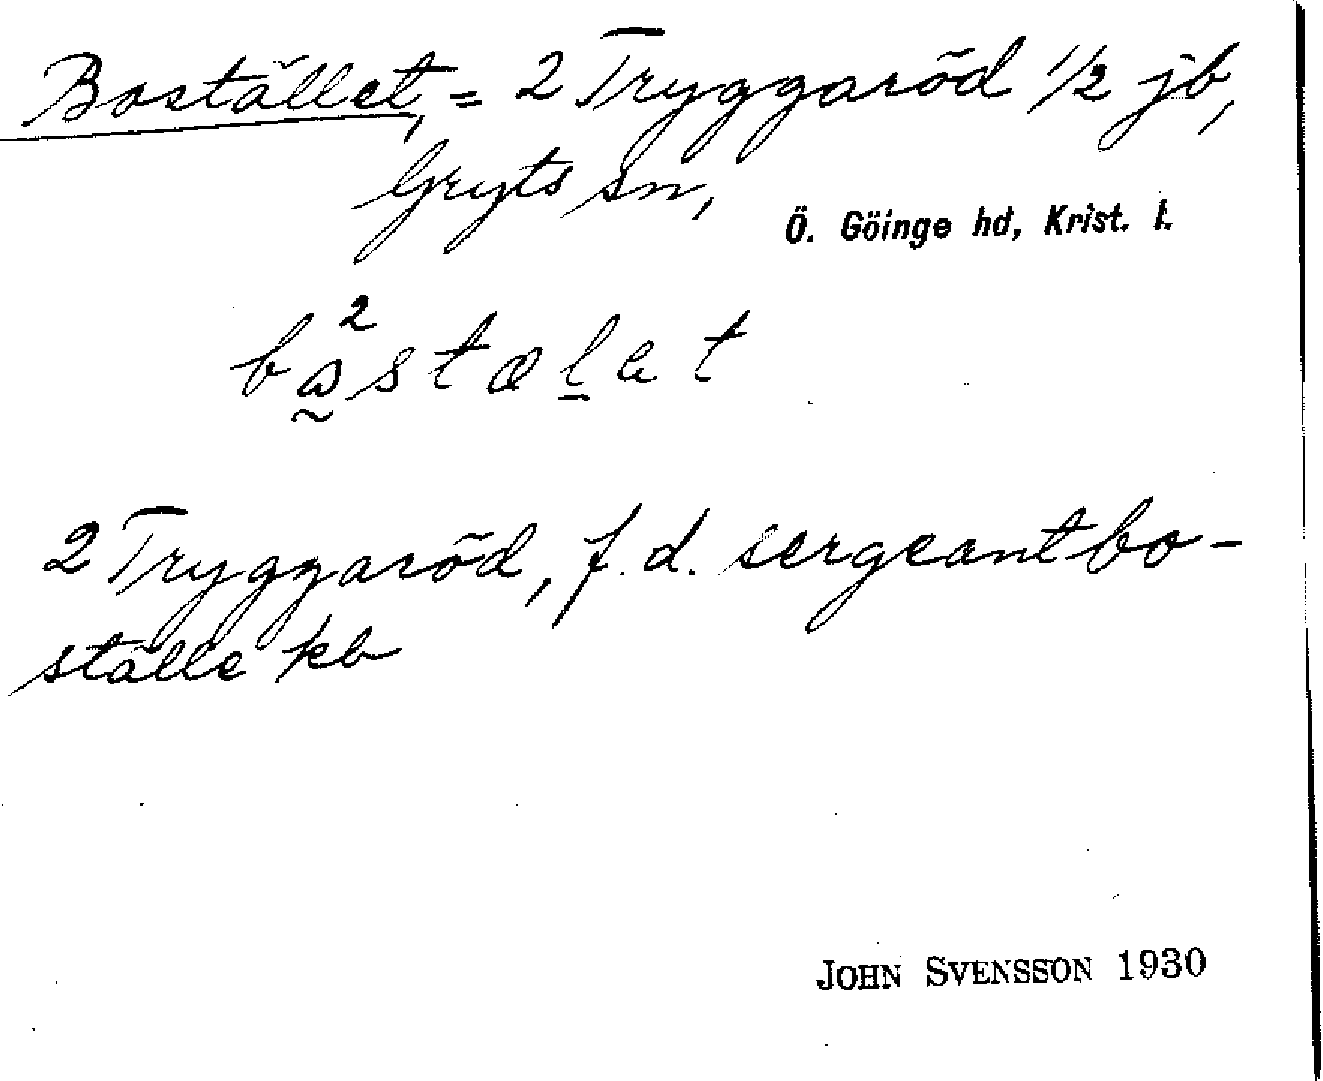 Bostället, = 2 Tryggaröd 1/2 jb,
Gryts sn,
Ö. Göinge hd, Krist. l.
2
bastælet
2 Tryggaröd, f.d. sergeantbo-
ställe kb
JOHN SVENSSON 1930